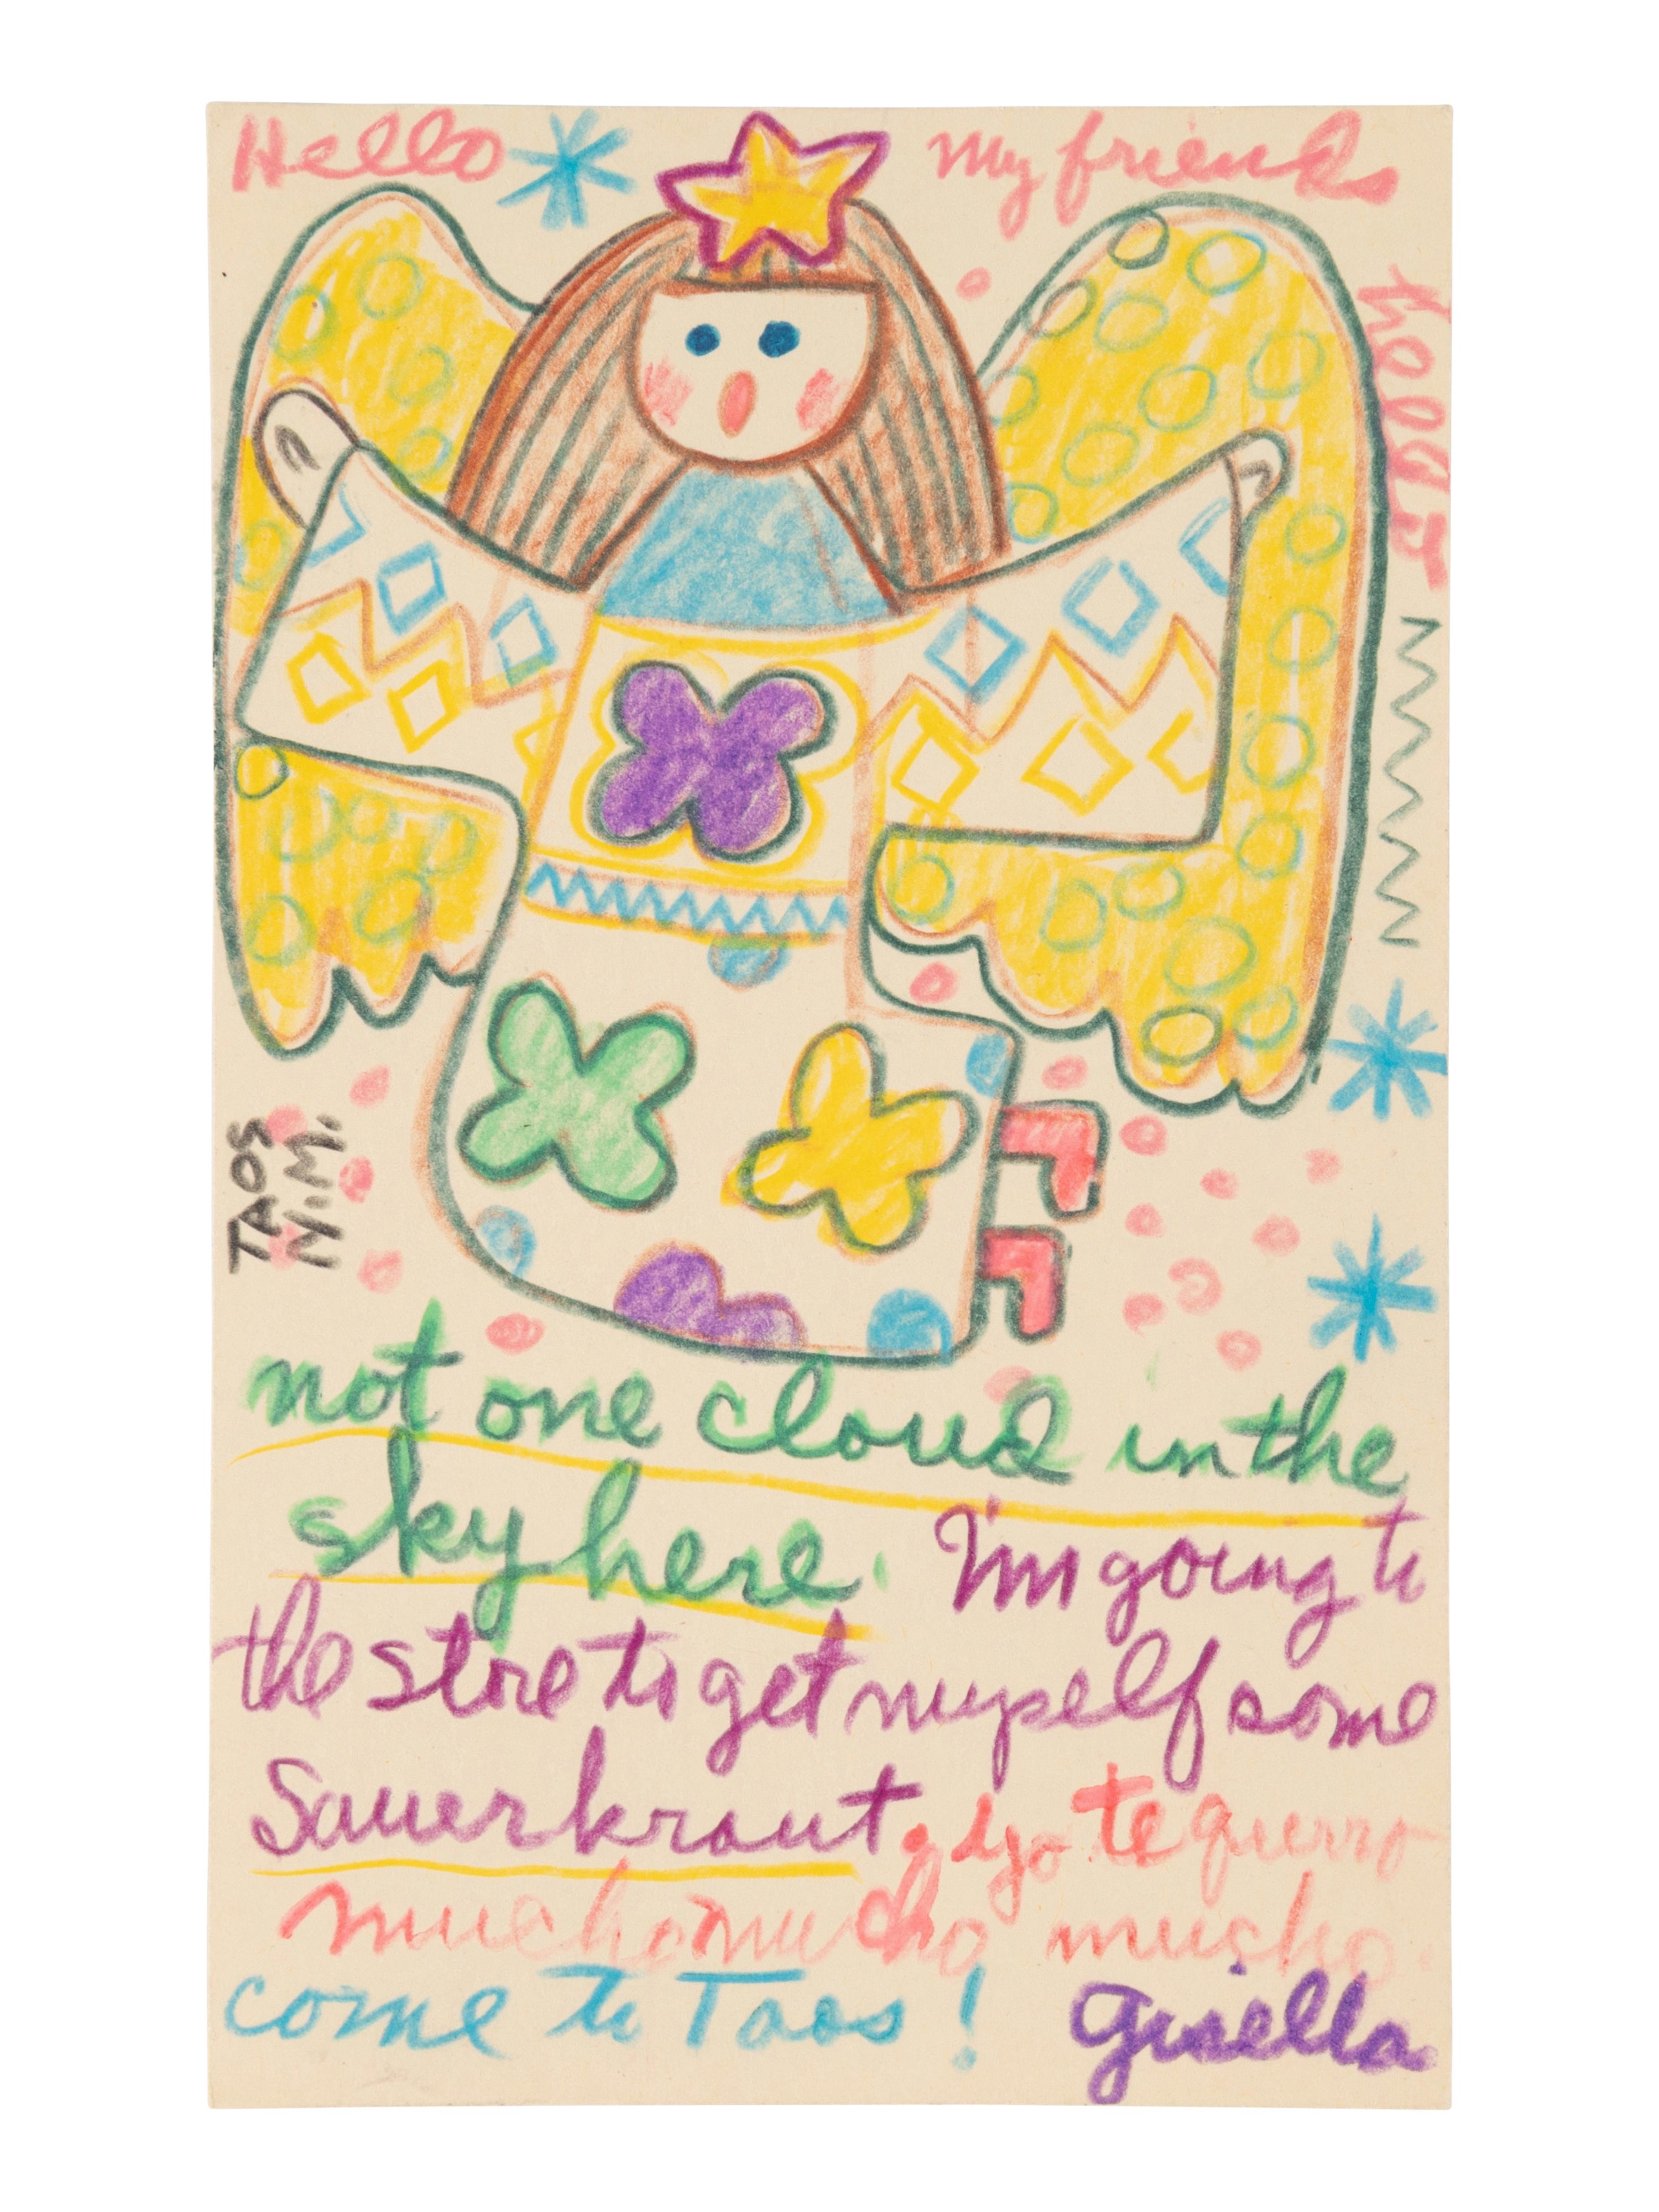 Hello my friends
TAOS
N.M.
not one cloud in the
sky here. I'm going to
the store to get myself some
Sauerkraut. yo te querro
mucho mucho mucho.
come to Taos! Gisella